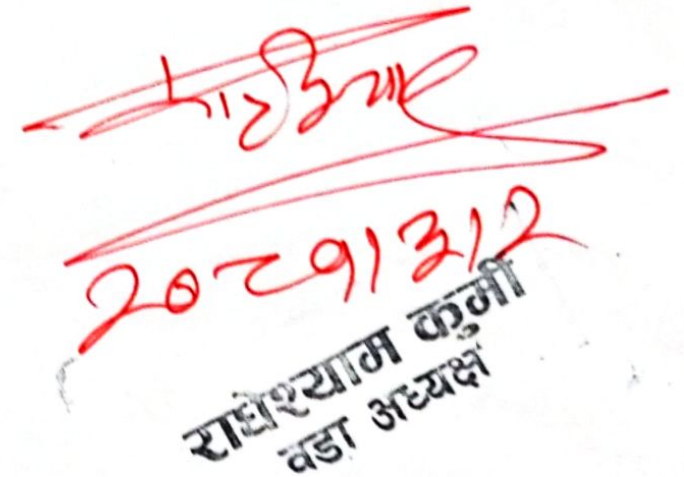 २०८१।३।२
राधेश्याम कुर्मी
वडा अध्यक्ष